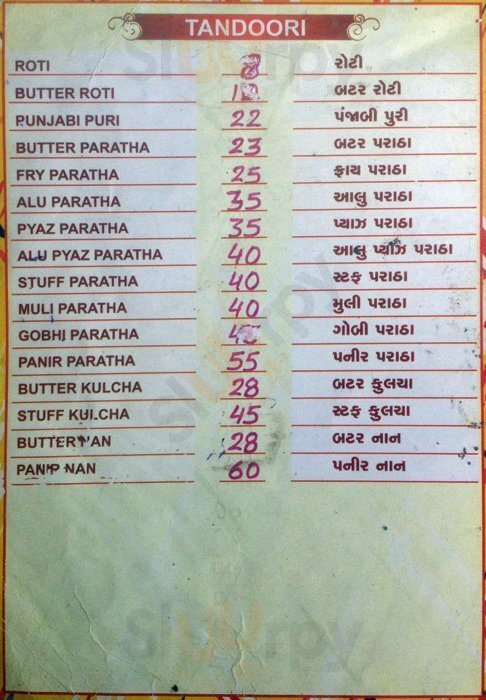 TANDOORI
ROTI 8 રોટી
BUTTER ROTI બટર રોટી
PUNJABI PURI 22 પંજાબી પુરી
BUTTER PARATHA 23 બટર પરાઠા
FRY PARATHA 25 ફ્રાય પરાઠા
ALU PARATHA 35 આલુ પરાઠા
PYAZ PARATHA 35 પ્યાઝ પરાઠા
ALU PYAZ PARATHA 40 આલુ પ્યાઝ પરાઠા
STUFF PARATHA 40 સ્ટફ પરાઠા
MULI PARATHA 40 મુલી પરાઠા
GOBHI PARATHA ગોબી પરાઠા
PANIR PARATHA 55 પનીર પરાઠા
BUTTER KULCHA 28 બટર કુલચા
STUFF KULCHA 45 સ્ટફ કુલચા
BUTTER NAN 28 બટર નાન
PANIR NAN 60 પનીર નાન